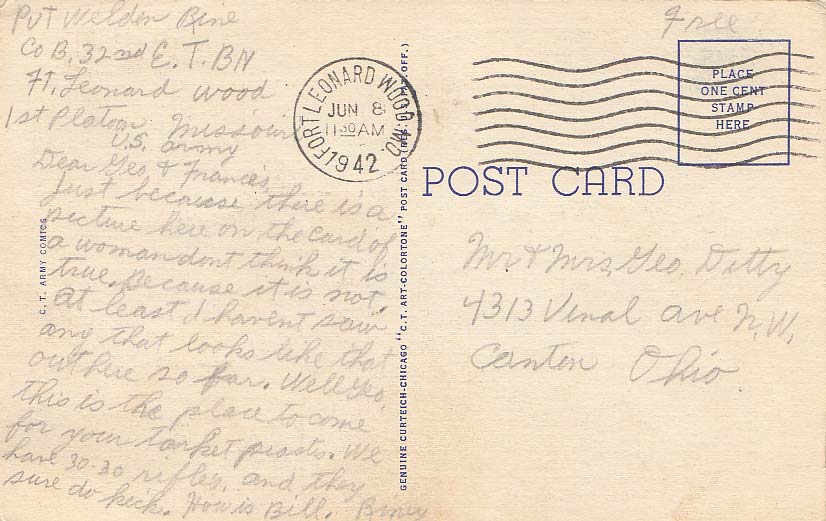 Pvt Weldon Rine
Co B. 32nd E.T. BN
Ft. Leonard Wood
1st Platoon Missouri
U.S. Army
Dear Geo, & Frances,
Just because there is a
picture here on the card of
a woman dont think it is
true. Because it is not.
At least I havent saw
any that looks like that
out here so far. Well Geo,
this is the place to come
for your tarket
We
have 30-30 rifles, and they
sure do kick. How is Bill. Riney
C.T. ARMY COMICS
GENUINE CURTEICH-CHICAGO "C.T. ART-COLORTONE" POST CARD (REG. U.S. PAT. OFF.)
FORT LEONARD WOOD, MO.
JUN 8
11 30 AM
1942
Free
PLACE
ONE CENT
STAMP
HERE
POST CARD
Mr & Mrs, Geo, Ditty
4313 Vinal ave N.W.
Canton Ohio.